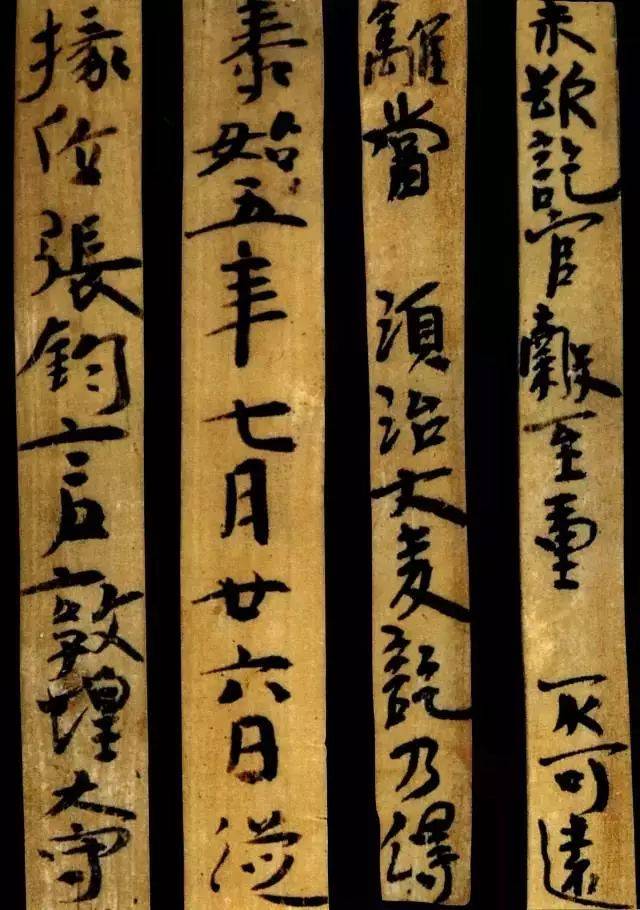 未欲訖官穀至重 不可遠
離當 須治大麦訖乃得
泰始五年七月廿六日從
掾位張鈞言敦煌大守